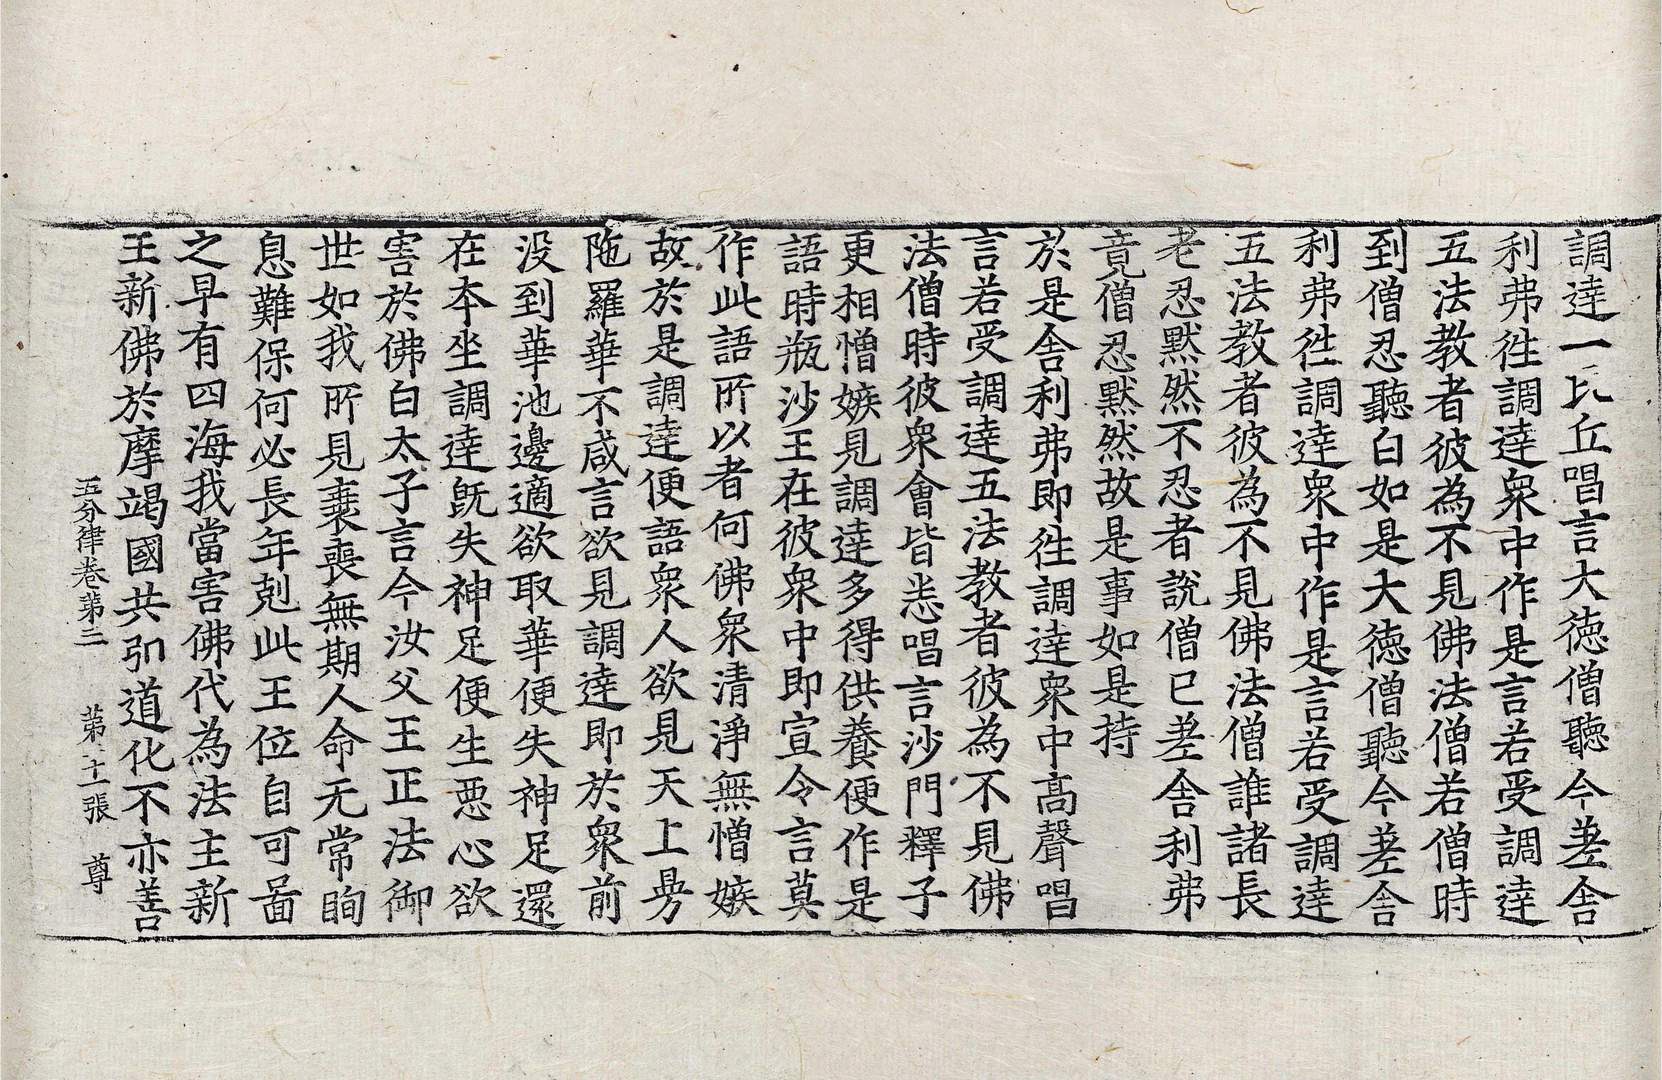 調達一比丘唱言大德僧聽今差舍
利弗徃調達衆中作是言若受調達
五法教者彼為不見佛法僧若僧時
到僧忍聽白如是大德僧聽今差舍
利弗徃調達衆中作是言若受調達
五法教者彼為不見佛法僧誰諸長
老忍默然不忍者說僧已差舍利弗
竟僧忍默然故是事如是持
於是舍利弗即徃調達衆中高聲唱
言若受調達五法教者彼為不見佛
法僧時彼衆會皆恙唱言沙門釋子
更相憎嫉見調達多得供養便作是
語時瓶沙王在彼衆中即宣令言莫
作此語所以者何佛衆清淨無憎嫉
故於是調達便語衆人欲見天上曼
陁羅華不咸言欲見調達即於衆前
没到華池邊適欲取華便失神足還
在夲坐調達旣失神足便生惡心欲
害於佛白太子言今汝父王正法御
世如我所見衰喪無期人命无常眴
息難保何必長年剋此王位自可啚
之早有四海我當害佛代為法主新
王新佛於摩竭國共弘道化不亦善
五分律卷第三　第二十張　尊